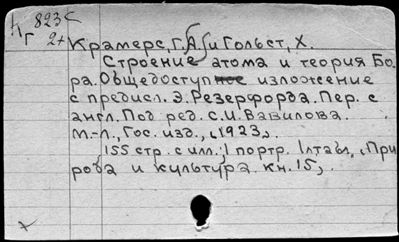 К 823 <
Г 2+
Крамерс, Г. А. и Гольст, Х.
Строение атома и теория Бо-
ра. Общедоступное изложение
с предисл. Э. Резерфорда. Пер. с
англ. Под ред. С.И. Вавилова.
М.-Л., Гос. изд., 1923.
155 стр. с илл.; 1 портр. 1 табл. При
рода и культура. кн. 15.